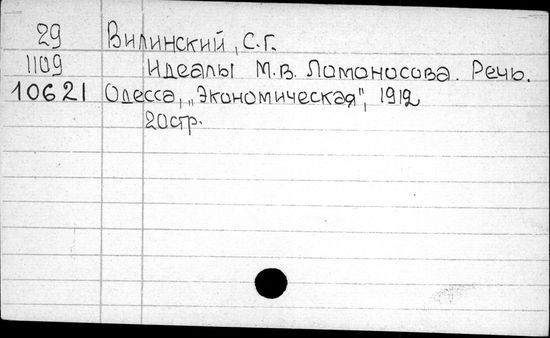 29 Вилинский, С.Г.
1109 Идеалы М.В. Ломоносова. Речь.
10621 Одесса, „Экономическая", 1912
20стр.